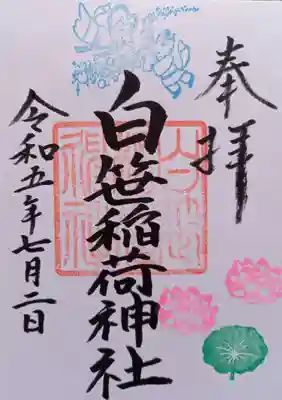 奉拝
白笹稲荷神社
令和五年七月二日